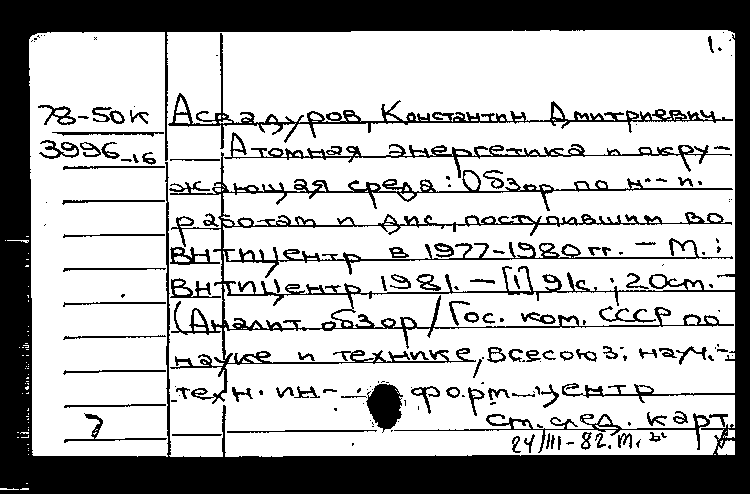 1.
78-50к Асвадуров, Константин Дмитриевич.
3996-16 Атомная энергетика и окру-
жающая среда: Обзор по н.-и.
работам и дис., поступившим во
ВНТИЦентр в 1977-1980 гг. — М.:
ВНТИЦентр, 1981. — [1], 91с.; 20см. —
(Аналит. обзор / Гос. ком. СССР по
науке и технике, Всесоюз. науч.-
техн. ин- форм. центр
см. след. карт.
24/III-82. м.